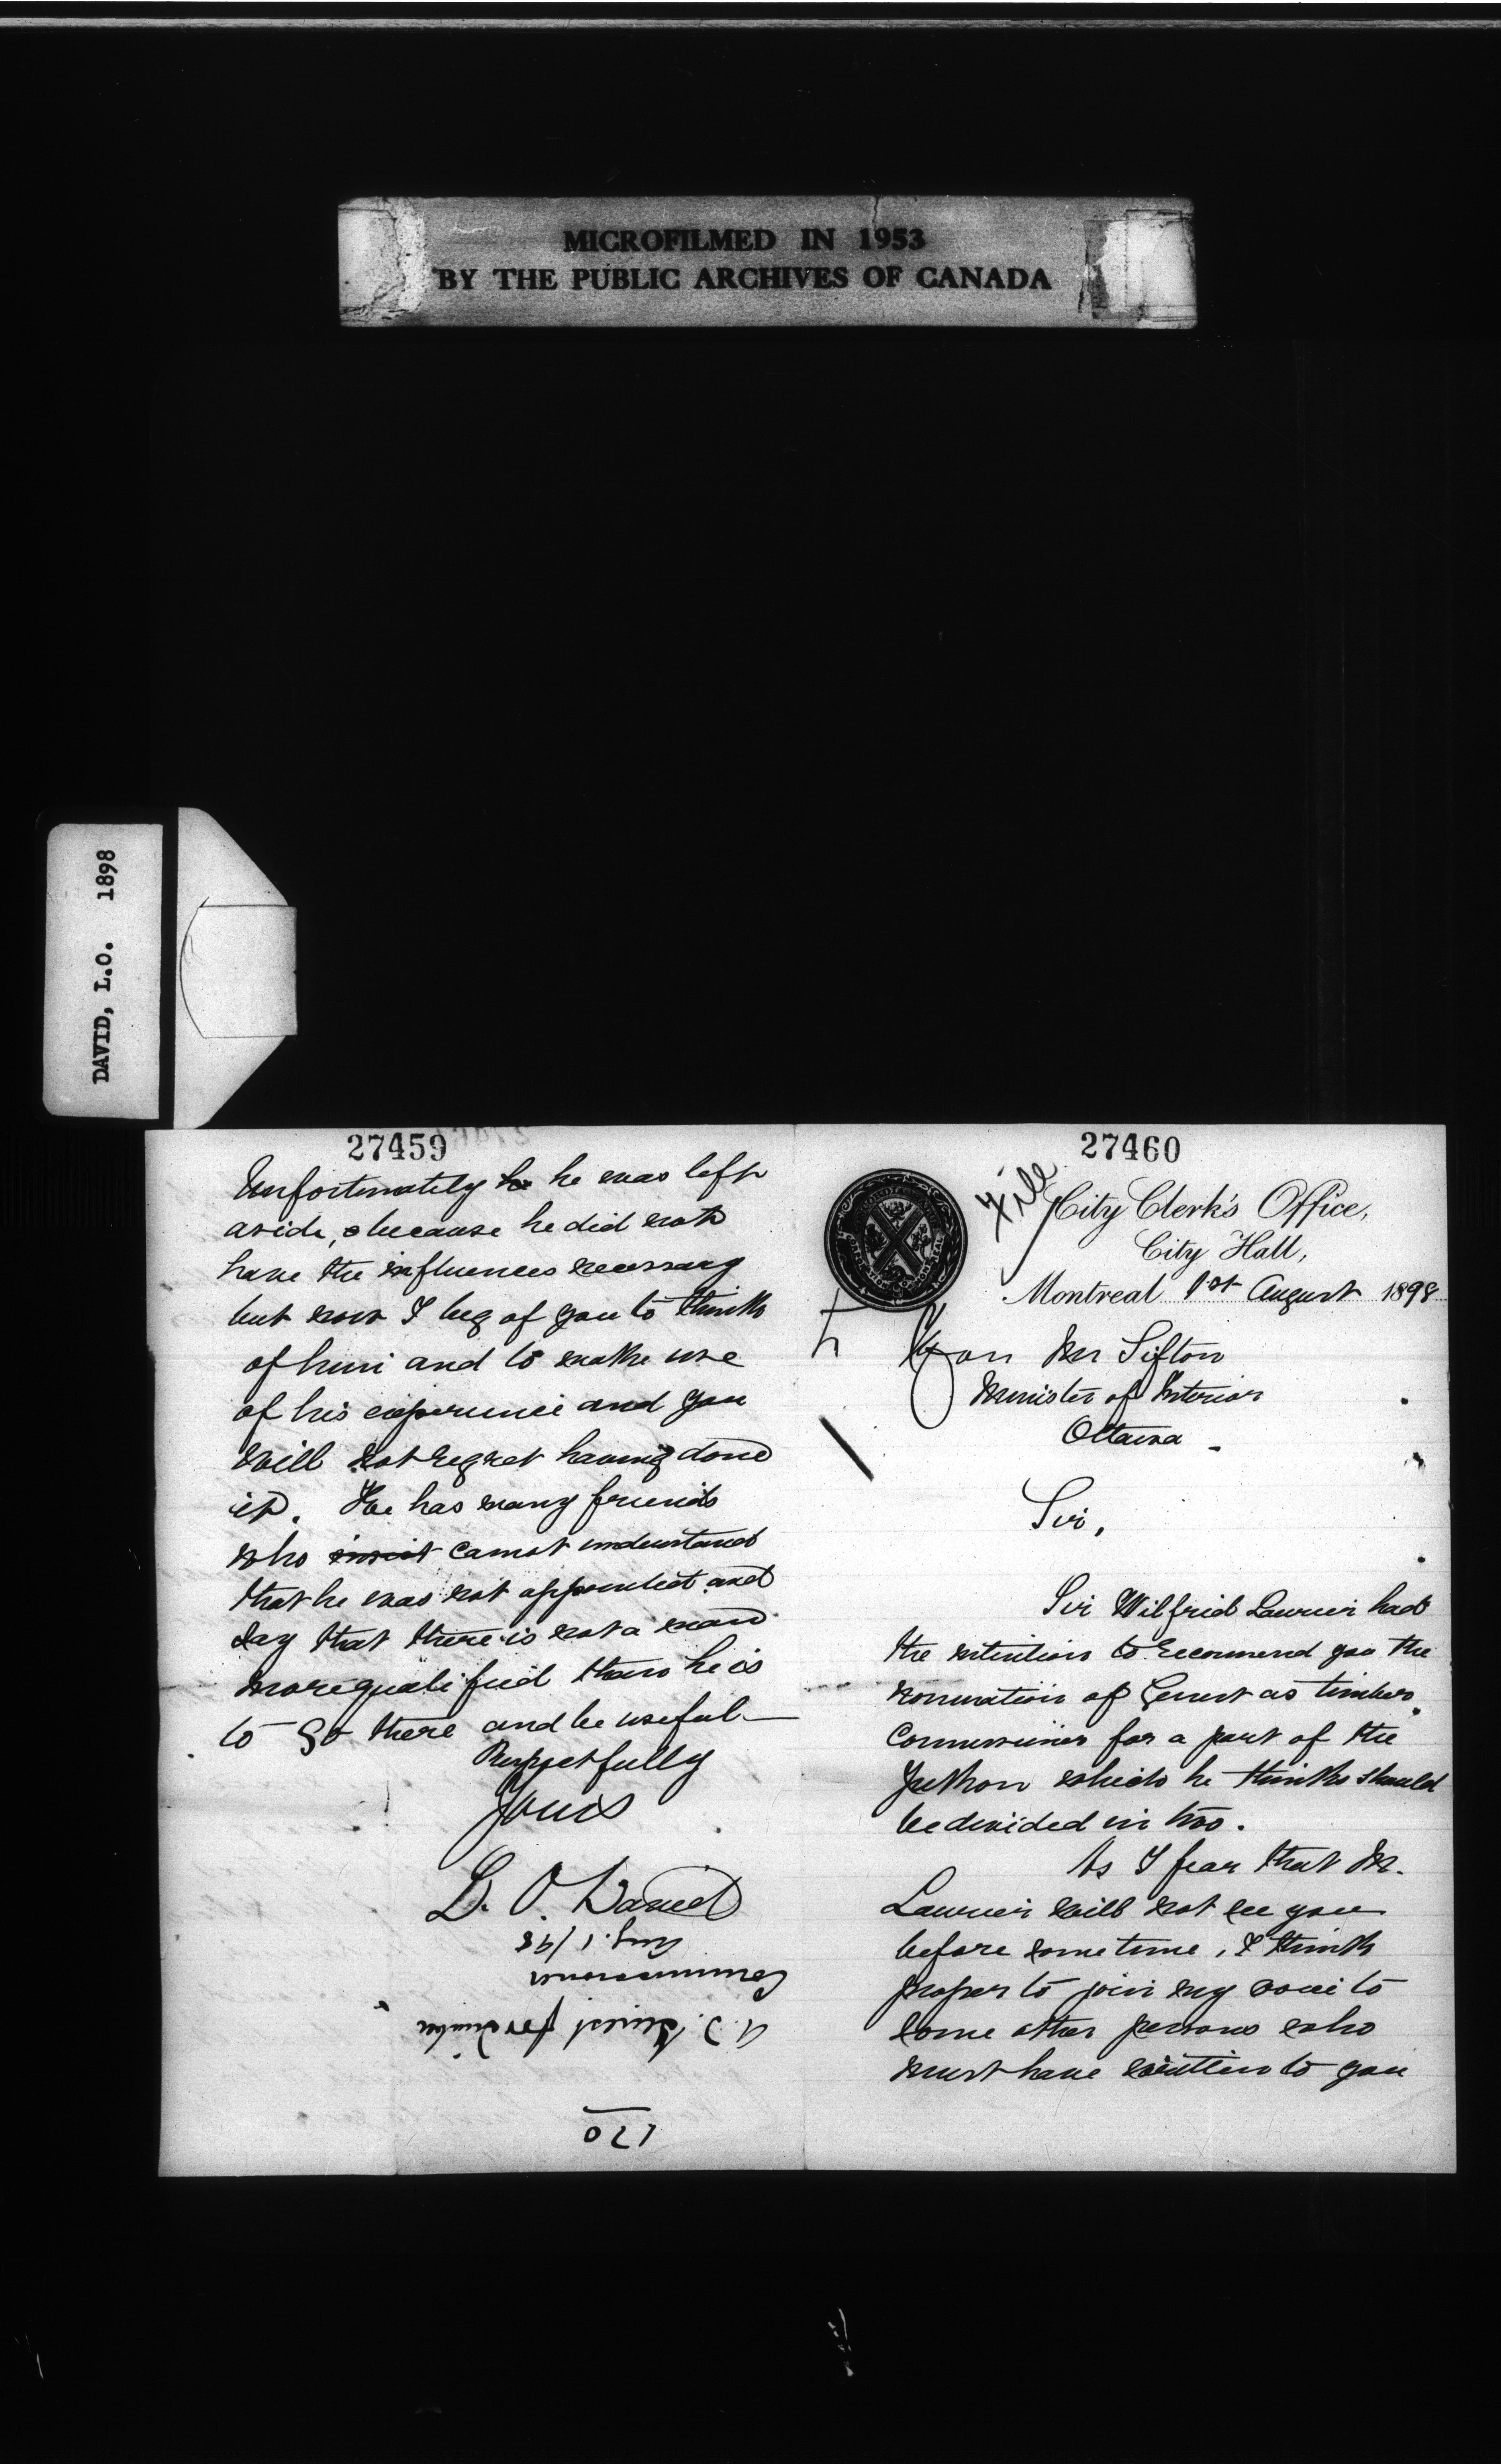 MICROFILMED IN 1953
BY THE PUBLIC ARCHIVES OF CANADA
DAVID, L.O. 1898
27459
Unfortunately he he was left
aside, because he did not
have the influences necessary
but now I beg of you to think
of him and to make use
of his experience and you
will not regret having done
it. He has many friends
who cannot understand
that he was not appointed and
say that there is not a man
more qualified than he is
to go there and be useful
Respetfully
Yours
L. O. David
Aug. 1/98
Commissioner
A. I. Genest for Timber
170
27460
File
City Clerk's Office,
City Hall,
Montreal 1st August 1898
Hon Mr Sifton
Minister of Interior
Ottawa
Sir,
Sir Wilfrid Laurier had
the intention to recommend you the
nomination of Genest as timber
commissioner for a part of the
Yukon which he thinks should
be devided in two.
As I fear that M.
Laurier will not see you
before some time, I think
proper to join my voice to
some other persons who
must have written to you